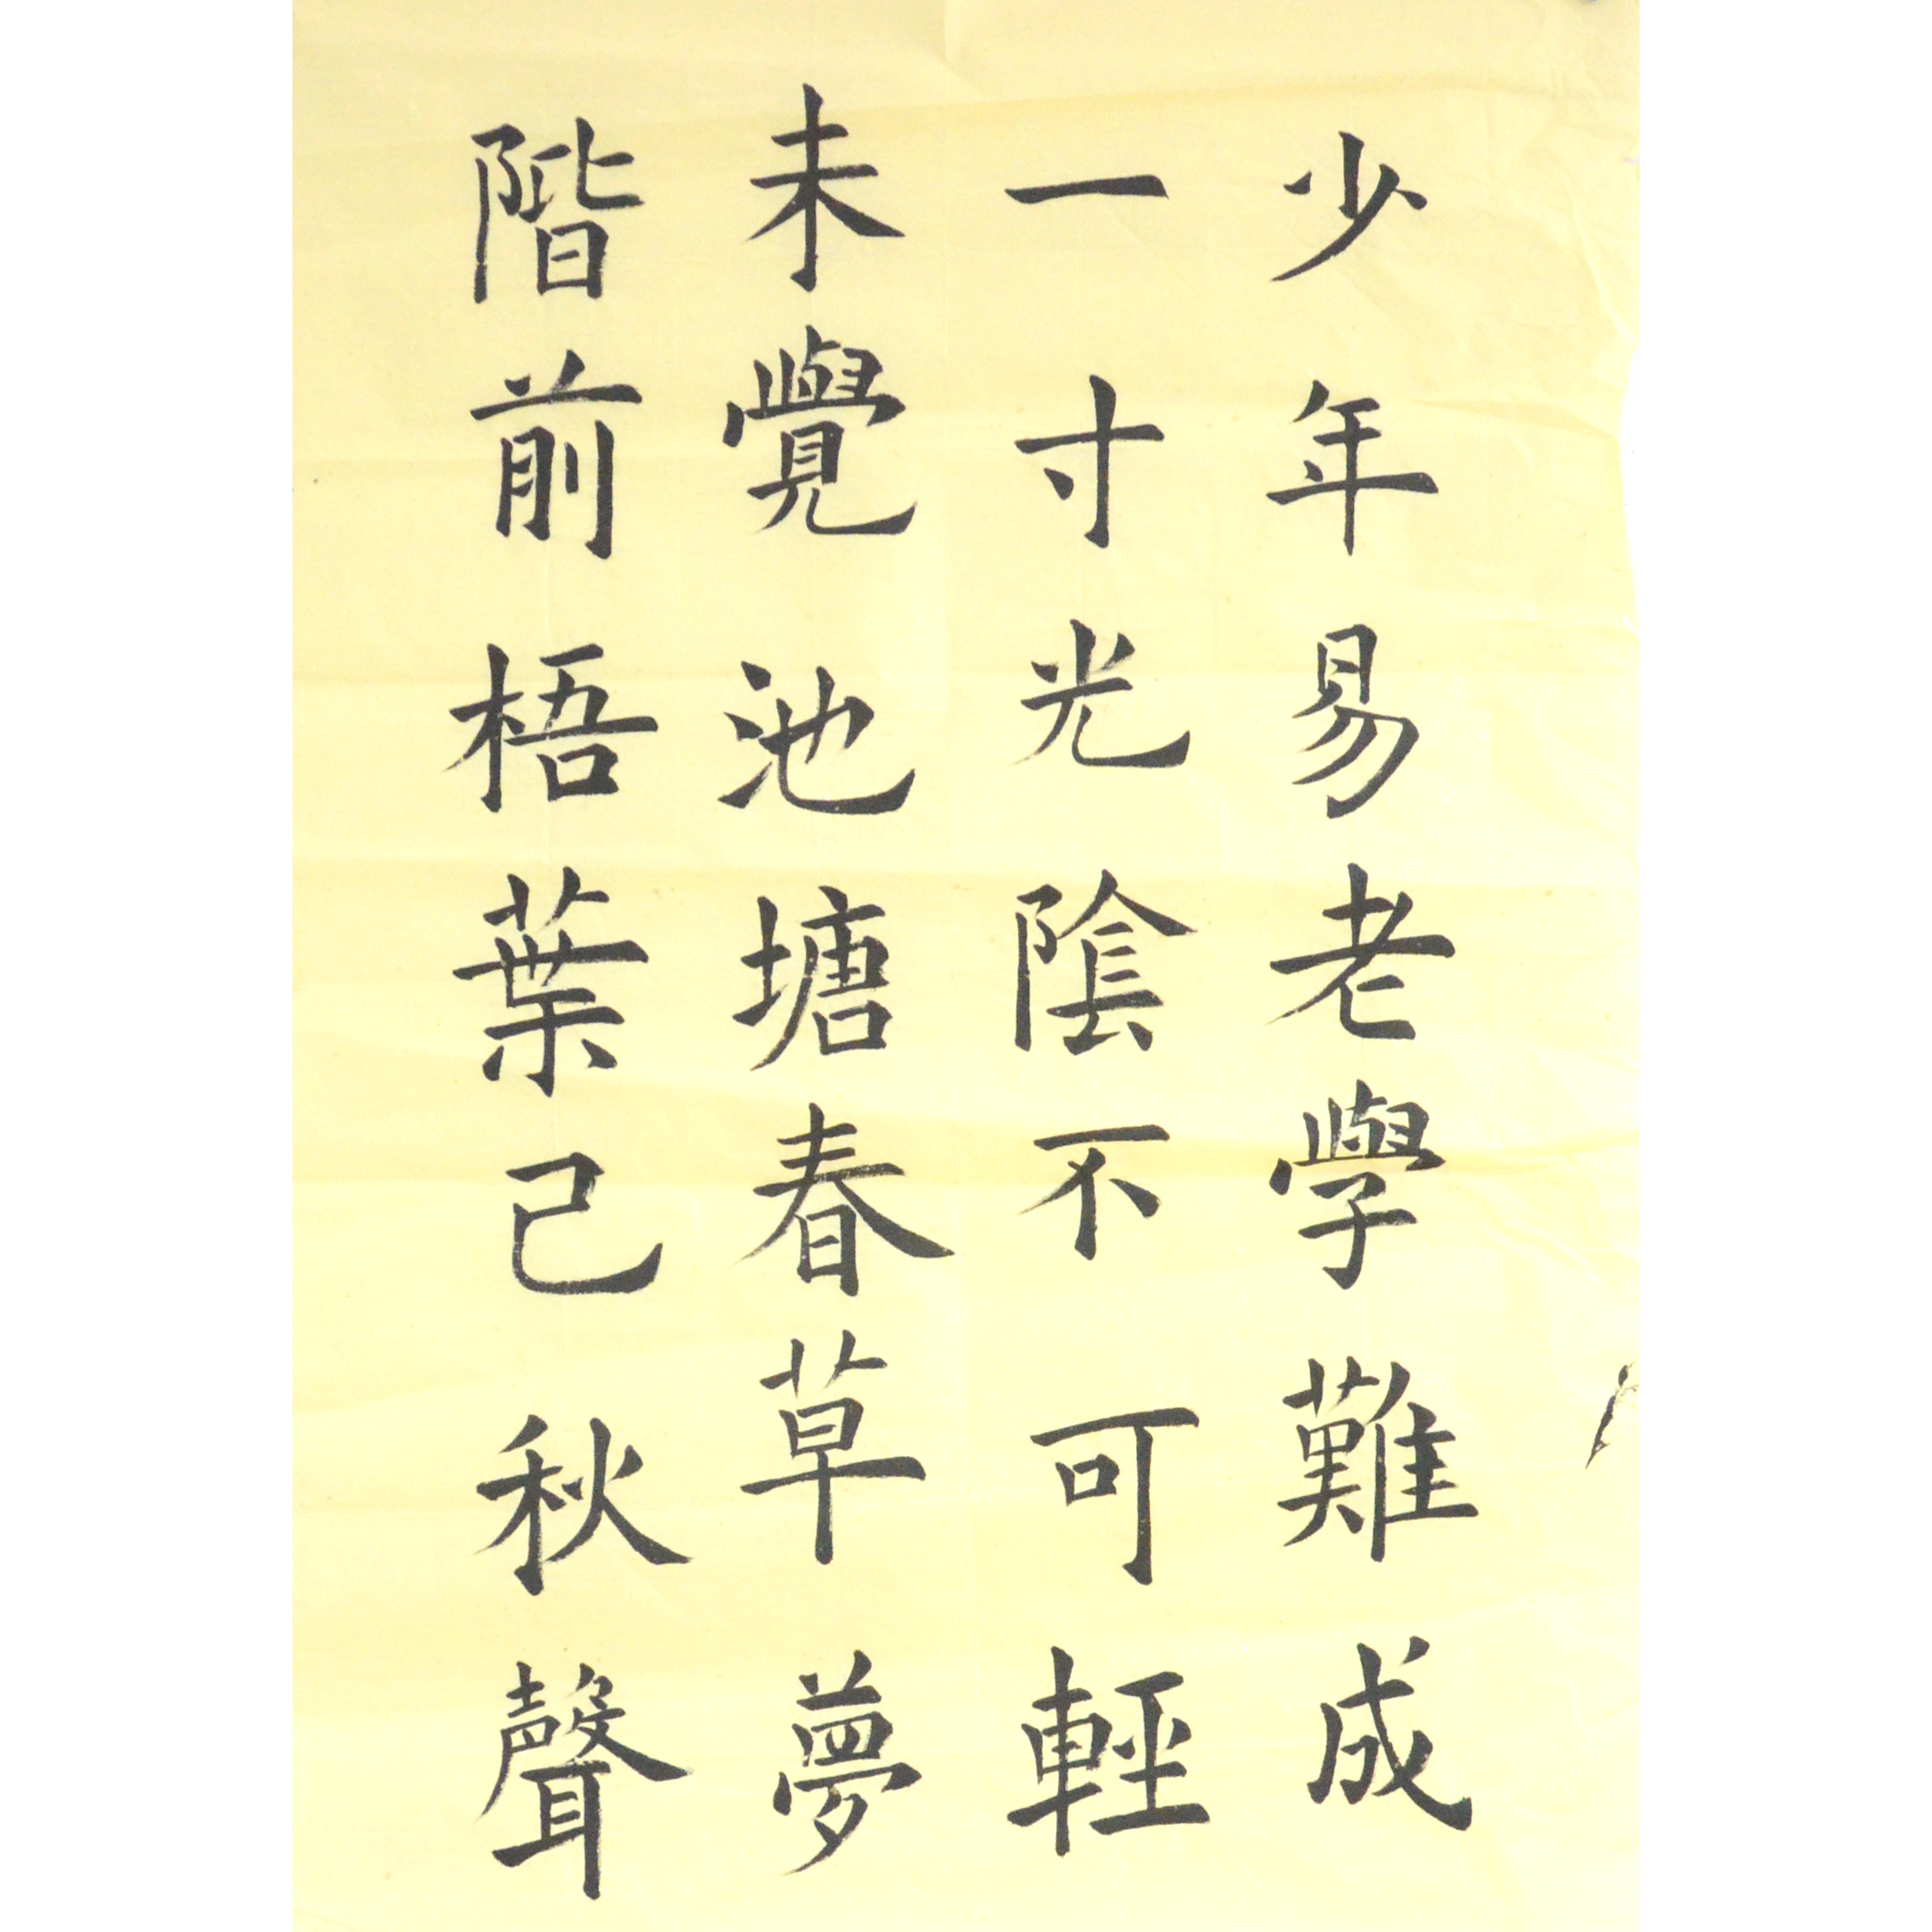 少年易老學難成
一寸光陰不可輕
未覺池塘春草夢
階前梧葉己秋聲